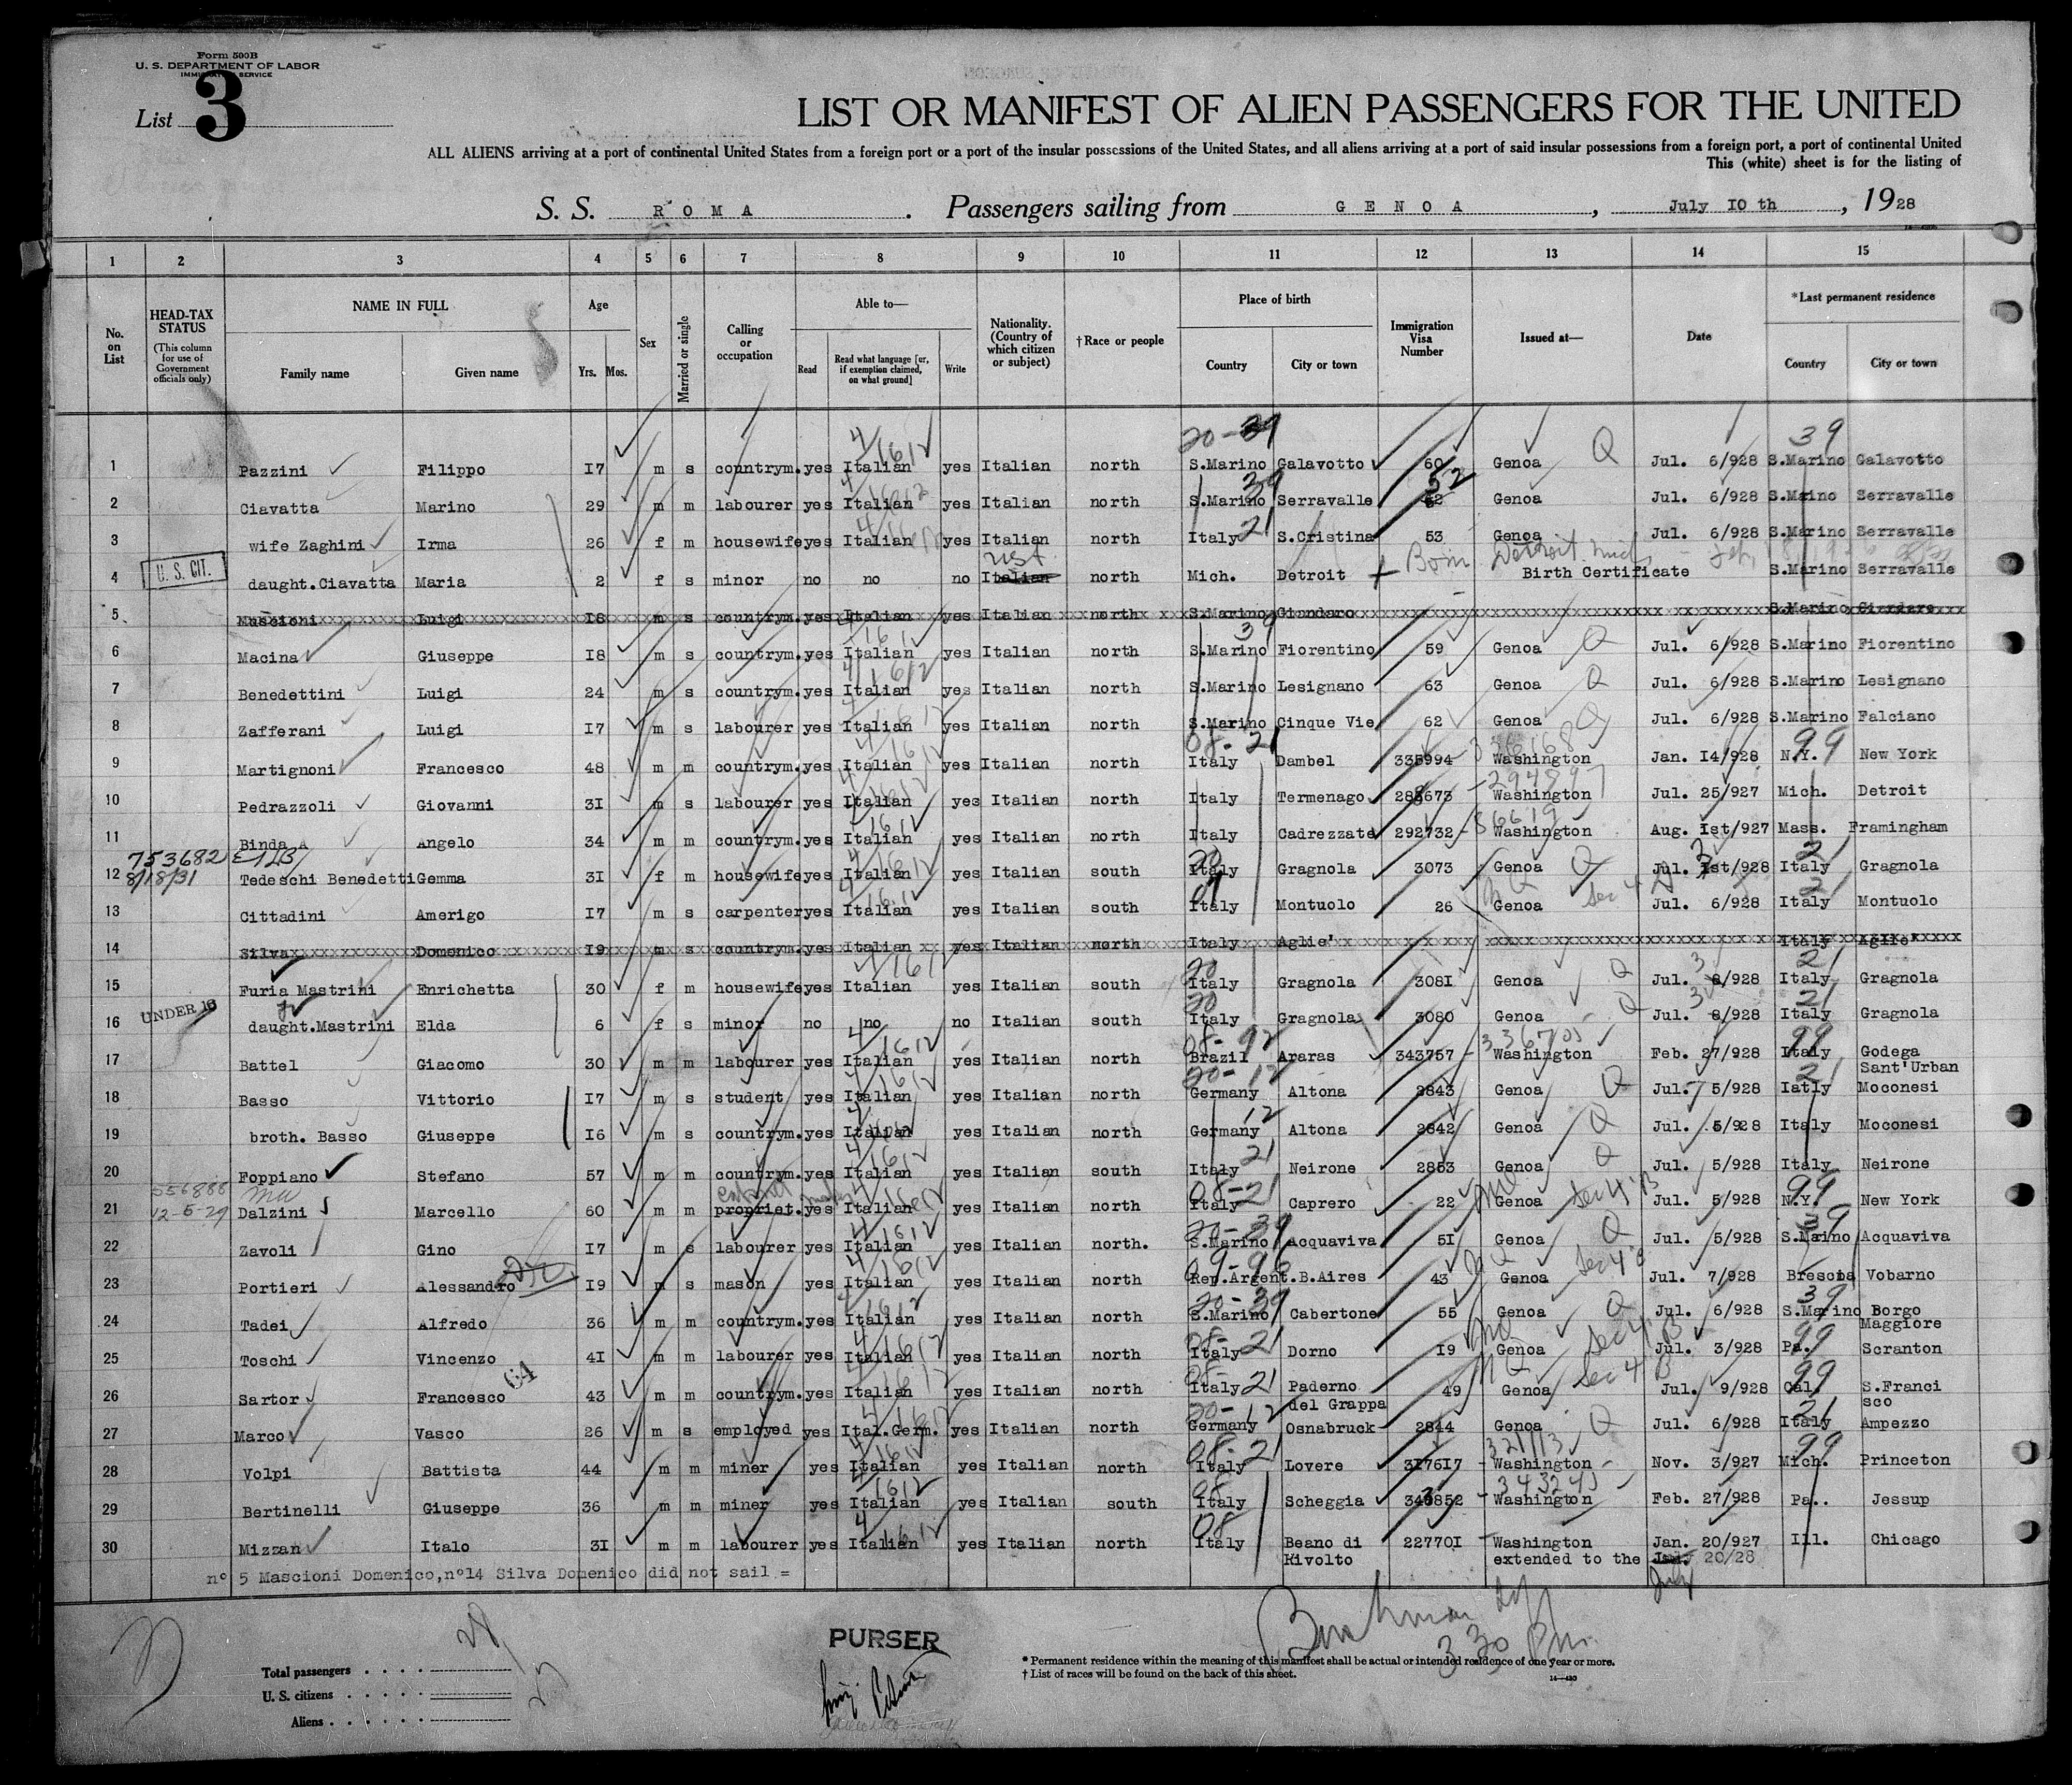 Form 500B
U. S. DEPARTMENT OF LABOR
IMMIGRATION SERVICE
List 3
LIST OR MANIFEST OF ALIEN PASSENGERS FOR THE UNITED
ALL ALIENS arriving at a port of continental United States from a foreign port or a port of the insular possessions of the United States, and all aliens arriving at a port of said insular possessions from a foreign port, a port of continental United
This (white) sheet is for the listing of
S. S. ROMA. Passengers sailing from GENOA, July I0 th, 1928
1 2 3 4 5 6 7 8 9 10 11 12 13 14 15
No. on List
HEAD-TAX STATUS (This column for use of Government officials only)
NAME IN FULL Family name Given name
Age Yrs. Mos.
Sex
Married or single
Calling or occupation
Able to— Read Read what language [or, if exemption claimed, on what ground] Write
Nationality. (Country of which citizen or subject)
†Race or people
Place of birth Country City or town
Immigration Visa Number
Issued at—
Date
*Last permanent residence Country City or town
20-39 39
1 Pazzini Filippo I7 m s countrym. yes Italian yes Italian north S.Marino Galavotto 60 Genoa Q Jul. 6/928 S.Marino Galavotto
2 Ciavatta Marino 29 m m labourer yes Italian yes Italian north S.Marino Serravalle 52 Genoa Jul. 6/928 S.Maino Serravalle
3 wife Zaghini Irma 26 f m housewife yes Italian yes Italian north Italy 21 S.Cristina 53 Genoa Jul. 6/928 S.Marino Serravalle
U. S. CIT. Born Detroit Mich
4 daught.Ciavatta Maria 2 f s minor no no no Italian north Mich. Detroit Birth Certificate S.Marino Serravalle
5 Muscioni Luigi I8 m s countrym. yes Italian yes Italian north S.Marino Giondaro S.Marino Giardaro
6 Macina Giuseppe I8 m s countrym. yes Italian yes Italian north S.Marino Fiorentino 59 Genoa Q Jul. 6/928 S.Marino Fiorentino
7 Benedettini Luigi 24 m s countrym. yes Italian yes Italian north S.Marino Lesignano 63 Genoa Q Jul. 6/928 S.Marino Lesignano
8 Zafferani Luigi I7 m s labourer yes Italian yes Italian north S.Marino Cinque Vie 62 Genoa Q Jul. 6/928 S.Marino Falciano
08-21 99
9 Martignoni Francesco 48 m m countrym. yes Italian yes Italian north Italy Dambel 335994 Washington Jan. I4/928 N.Y. New York
10 Pedrazzoli Giovanni 3I m s labourer yes Italian yes Italian north Italy Termenago 283673 -294897 Washington Jul. 25/927 Mich. Detroit
11 Binda Angelo 34 m m countrym. yes Italian yes Italian north Italy Cadrezzate 292732 -86619 Washington Aug. Ist/927 Mass. Framingham
753682 8/18/31
12 Tedeschi Benedetti Gemma 3I f m housewife yes Italian yes Italian south Italy Gragnola 3073 Genoa Q Jul. Ist/928 Italy Gragnola
13 Cittadini Amerigo I7 m s carpenter yes Italian yes Italian south Italy Montuolo 26 Genoa Jul. 6/928 Italy Montuolo
14 Silva Domenico I9 m s countrym. yes Italian yes Italian north Italy Aglie' Italy Aglie'
15 Furia Mastrini Enrichetta 30 f m housewife yes Italian yes Italian south Italy Gragnola 308I Genoa Q Jul. 8/928 Italy Gragnola
UNDER 16
16 daught.Mastrini Elda 6 f s minor no no no Italian south Italy Gragnola 3080 Genoa Q Jul. 8/928 Italy Gragnola
17 Battel Giacomo 30 m m labourer yes Italian yes Italian north Brazil Araras 343757 Washington Feb. 27/928 Italy Godega Sant'Urban
18 Basso Vittorio I7 m s student yes Italian yes Italian north Germany Altona 2843 Genoa Q Jul. 5/928 Iatly Moconesi
19 broth. Basso Giuseppe I6 m s countrym. yes Italian yes Italian north Germany Altona 2842 Genoa Q Jul. 5/928 Italy Moconesi
20 Foppiano Stefano 57 m m countrym. yes Italian yes Italian south Italy 21 Neirone 2853 Genoa Q Jul. 5/928 Italy Neirone
556888 12-5-29
21 Dalzini Marcello 60 m m propriet. yes Italian yes Italian north Italy Caprero 22 Genoa Sec 4 B Jul. 5/928 N.Y. New York
22 Zavoli Gino I7 m s labourer yes Italian yes Italian north. S.Marino Acquaviva 5I Genoa Q Jul. 5/928 S.Marino Acquaviva
23 Portieri Alessandro I9 m s mason yes Italian yes Italian north Rep.Argent. B.Aires 43 Genoa Sec 4 B Jul. 7/928 Brescia Vobarno
24 Tadei Alfredo 36 m m countrym. yes Italian yes Italian north S.Marino Cabertone 55 Genoa Q Jul. 6/928 S.Marino Borgo Maggiore
25 Toschi Vincenzo 4I m m labourer yes Italian yes Italian north Italy Dorno I9 Genoa Sec 4 B Jul. 3/928 Pa. Scranton
26 Sartor Francesco 43 m m countrym. yes Italian yes Italian north Italy 21 Paderno del Grappa 49 Genoa Sec 4 B Jul. 9/928 Cal. S.Franci sco
27 Marco Vasco 26 m s employed yes Ital.Germ. yes Italian north Germany Osnabruck 2844 Genoa Q Jul. 6/928 Italy Ampezzo
28 Volpi Battista 44 m m miner yes Italian yes Italian north Italy Lovere 3I76I7 Washington Nov. 3/927 Mich. Princeton
29 Bertinelli Giuseppe 36 m m miner yes Italian yes Italian south Italy Scheggia 340852 Washington Feb. 27/928 Pa.. Jessup
30 Mizzan Italo 3I m m labourer yes Italian yes Italian north Italy Beano di Rivolto 22770I Washington Jan. 20/927 Ill. Chicago
extended to the July 20/28
n° 5 Mascioni Domenico,n°I4 Silva Domenico did not sail =
PURSER
3 30 Pm.
Total passengers
U. S. citizens
Aliens
* Permanent residence within the meaning of this manifest shall be actual or intended residence of one year or more.
† List of races will be found on the back of this sheet.